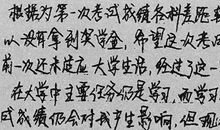 根据为第一次考试成绩各科差距
以没有拿到奖学金,希望这次考
前一次还未适应大学生活,经过了这一
在大学中主要任务仍是学习,而学习
试成绩仍会对我产生影响,但